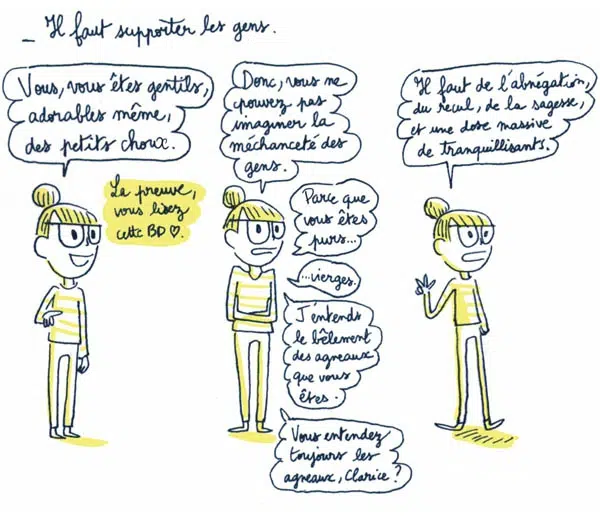 _ Il faut supporter les gens.
Vous, vous êtes gentils,
adorables même,
des petits choux.
La preuve,
vous lisez
cette BD ♡.
Donc, vous ne
pouvez pas
imaginer la
méchanceté des
gens.
Parce que
vous êtes
purs...
...vierges.
J'entends
le bêlement
des agneaux
que vous
êtes.
Vous entendez
toujours les
agneaux, Clarice ?
Il faut de l'abnégation,
du recul, de la sagesse,
et une dose massive
de tranquillisants.